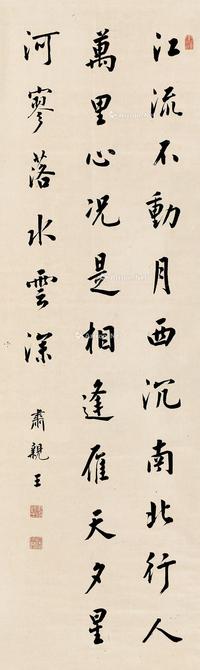 江流不動月西沉南北行人
萬里心况是相逢雁天夕星
河寥落水雲深
肅親王